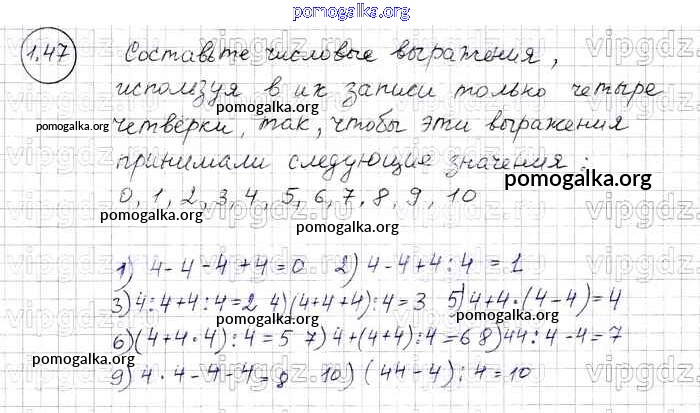 pomogalka.org
1.47 Составьте числовые выражения,
используя в их записи только четыре
pomogalka.org
pomogalka.org
четвёрки, так, чтобы эти выражения
pomogalka.org
принимали следующие значения:
pomogalka.org
0, 1, 2, 3, 4, 5, 6, 7, 8, 9, 10
pomogalka.org
pomogalka.org
1) 4-4-4+4=0 2) 4-4+4:4=1
pomogalka.org
3) 4:4+4:4=2 4) (4+4+4):4=3 5) 4+4·(4-4)=4
pomogalka.org
6) (4+4·4):4=5 7) 4+(4+4):4=6 8) 44:4-4=7
pomogalka.org
pomogalka.org
9) 4·4-4-4=8 10) (44-4):4=10
pomogalka.org